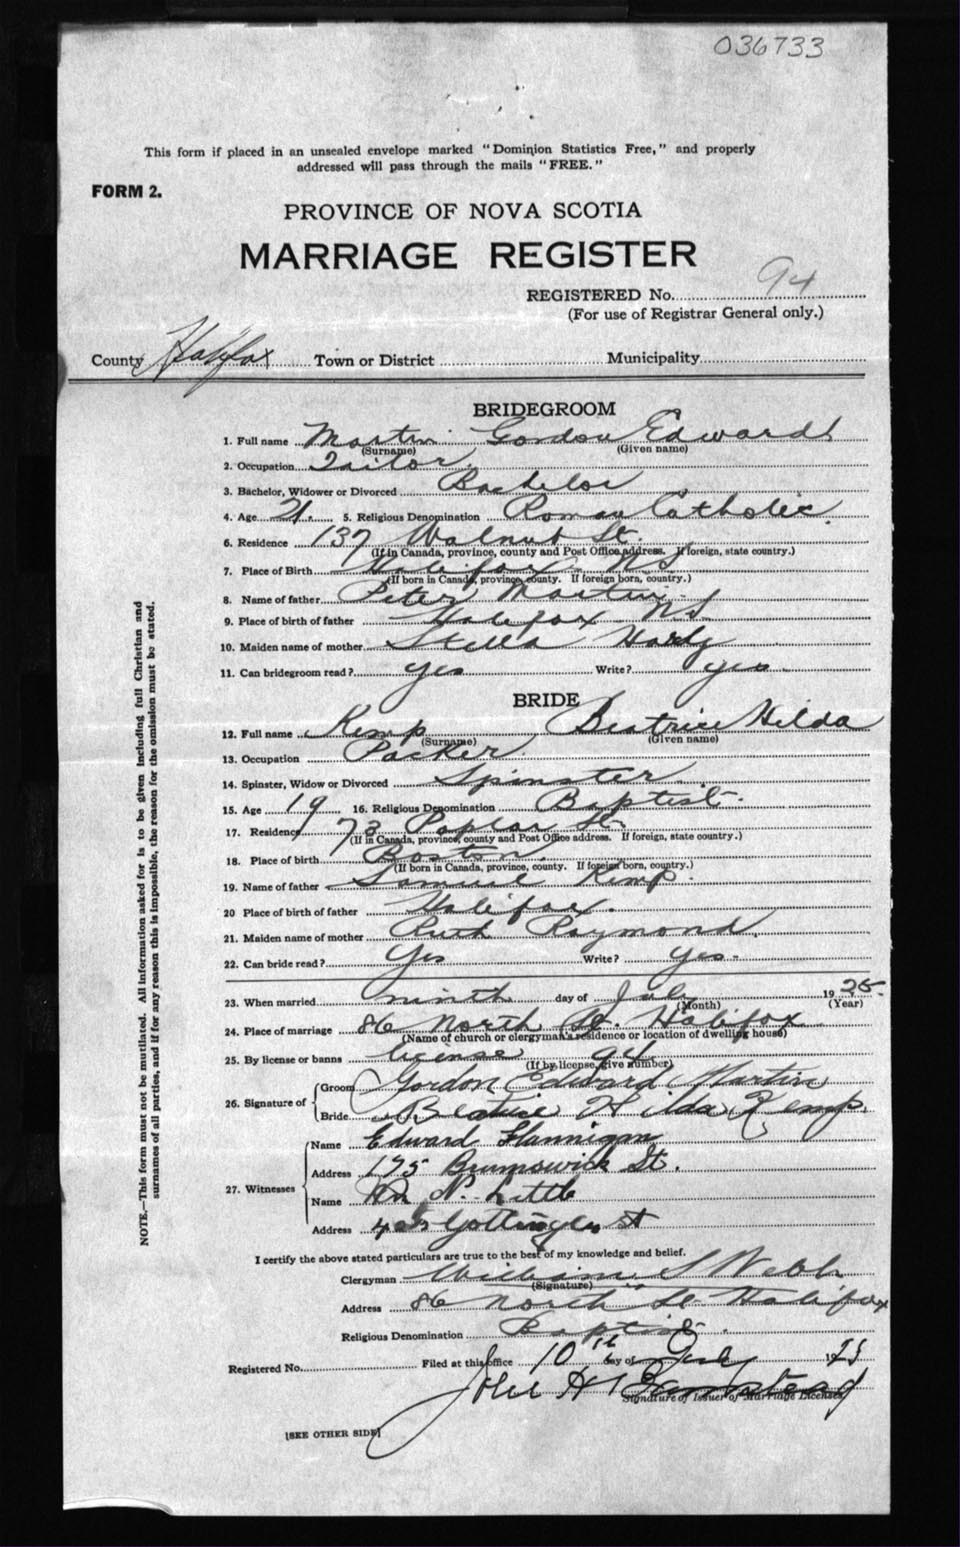 036733
This form if placed in an unsealed envelope marked "Dominion Statistics Free," and properly
addressed will pass through the mails "FREE."
FORM 2.
PROVINCE OF NOVA SCOTIA
MARRIAGE REGISTER
REGISTERED No. 94
(For use of Registrar General only.)
County Halifax Town or District Municipality
BRIDEGROOM
1. Full name Martin Gordon Edward
(Surname) (Given name)
2. Occupation Tailor
3. Bachelor, Widower or Divorced Bachelor
4. Age 21. 5. Religious Denomination Roman Catholic.
6. Residence 137 Walnut St.
(If in Canada, province, county and Post Office address. If foreign, state country.)
7. Place of Birth Halifax NS
(If born in Canada, province, county. If foreign born, country.)
8. Name of father Peter Martin
9. Place of birth of father Halifax NS
10. Maiden name of mother Stella
11. Can bridegroom read? yes Write? yes.
BRIDE
12. Full name Kemp Beatrice Hilda
(Surname) (Given name)
13. Occupation Packer
14. Spinster, Widow or Divorced Spinster
15. Age 19 16. Religious Denomination Baptist.
17. Residence 73 Poplar St.
(If in Canada, province, county and Post Office address. If foreign, state country.)
18. Place of birth Boston
(If born in Canada, province, county. If foreign born, country.)
19. Name of father Samuel Kemp.
20 Place of birth of father Halifax.
21. Maiden name of mother Ruth Raymond
22. Can bride read? Yes Write? Yes.
23. When married ninth day of July 1925.
(Month) (Year)
24. Place of marriage 86 North St. Halifax
(Name of church or clergyman's residence or location of dwelling house)
25. By license or banns license 94
(If by license, give number)
26. Signature of Groom Gordon Edward Martin
Bride Beatrice Hilda Kemp.
27. Witnesses Name Edward Flannigan
Address 175 Brunswick St.
Name Wm N. Little
Address Gottingen St
I certify the above stated particulars are true to the best of my knowledge and belief.
Clergyman William S Webb
(Signature)
Address 86 North St. Halifax
Religious Denomination Baptist.
Registered No. Filed at this office 10th day of July 1925
John H Barnstead
Signature of Issuer of Marriage Licenses
[SEE OTHER SIDE]
NOTE.—This form must not be mutilated. All information asked for is to be given including full Christian and
surnames of all parties, and if for any reason this is impossible, the reason for the omission must be stated.